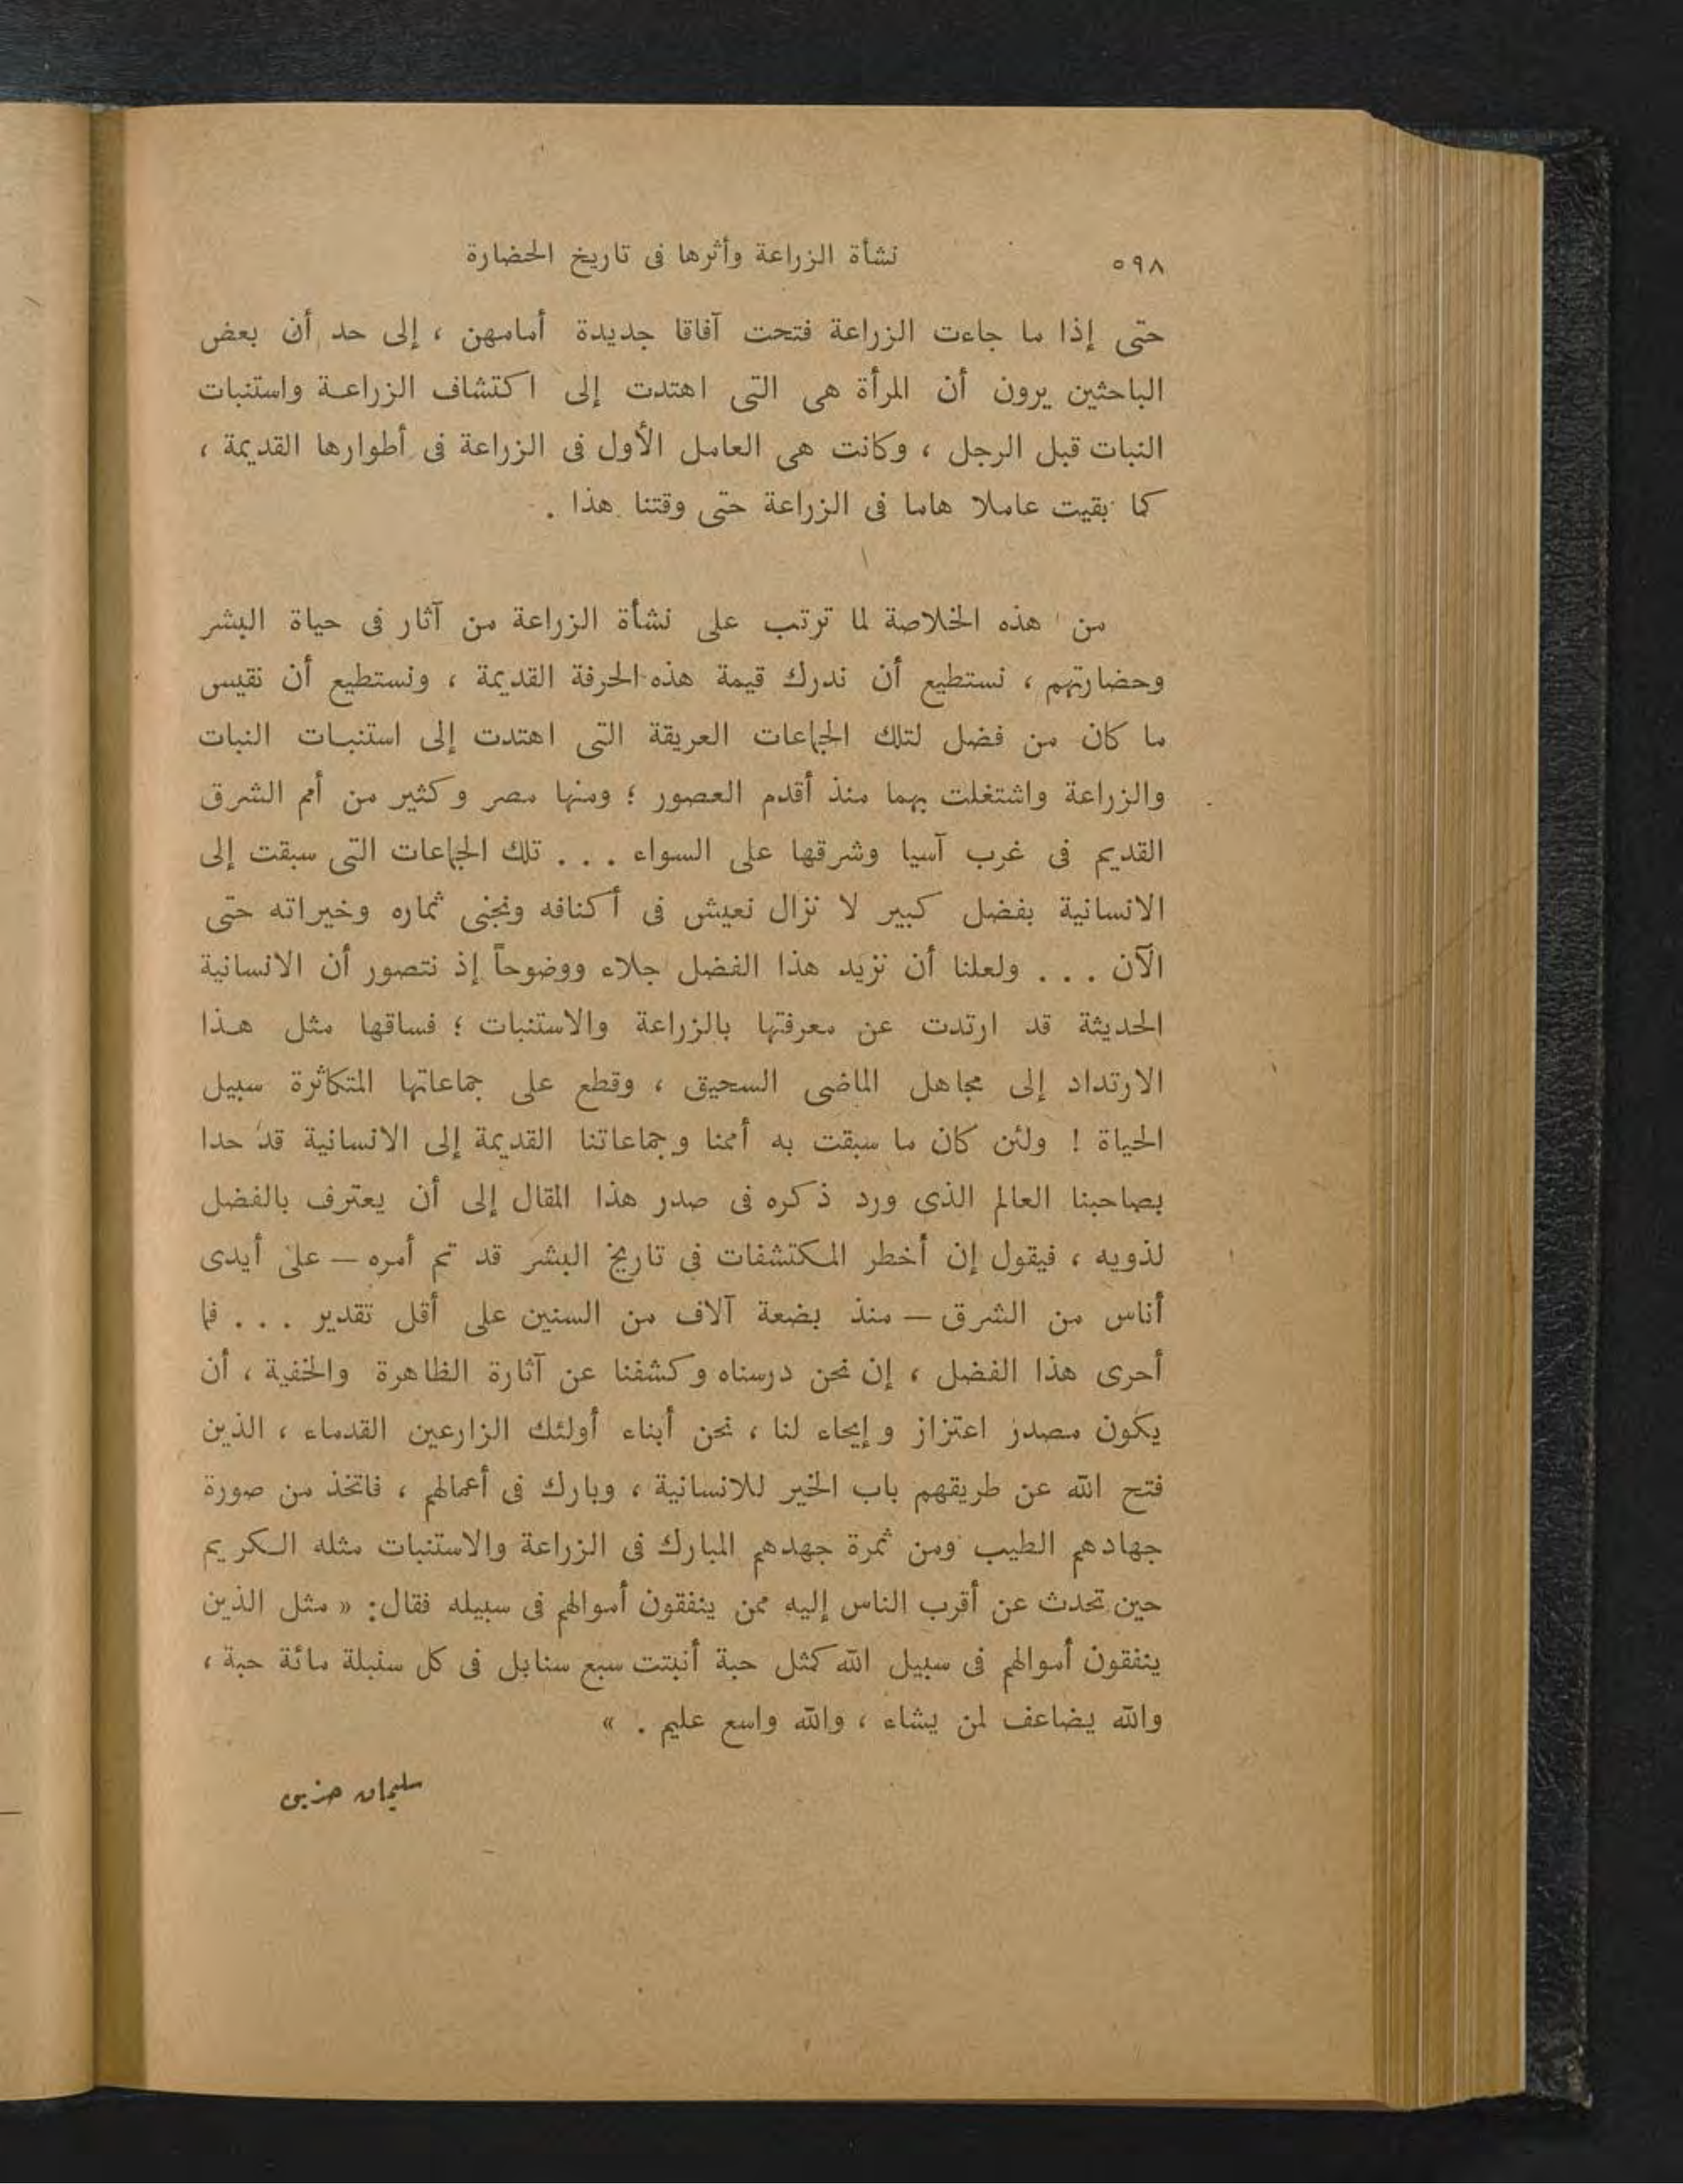 ٥٩٨ نشأة الزراعة وأثرها فى تاريخ الحضارة
حتى إذا ما جاءت الزراعة فتحت آفاقا جديدة أمامهن ، إلى حد أن بعض
الباحثين يرون أن المرأة هى التى اهتدت إلى اكتشاف الزراعة واستنبات
النبات قبل الرجل ، وكانت هى العامل الأول فى الزراعة فى أطوارها القديمة ،
كما بقيت عاملا هاما فى الزراعة حتى وقتنا هذا .
من هذه الخلاصة لما ترتب على نشأة الزراعة من آثار فى حياة البشر
وحضارتهم ، نستطيع أن ندرك قيمة هذه الحرفة القديمة ، ونستطيع أن نقيس
ما كان من فضل لتلك الجماعات العريقة التى اهتدت إلى استنبات النبات
والزراعة واشتغلت بهما منذ أقدم العصور ؛ ومنها مصر وكثير من أمم الشرق
القديم فى غرب آسيا وشرقها على السواء . . . تلك الجماعات التى سبقت إلى
الانسانية بفضل كبير لا نزال نعيش فى أكنافه ونجنى ثماره وخيراته حتى
الآن . . . ولعلنا أن نزيد هذا الفضل جلاء ووضوحاً إذ نتصور أن الانسانية
الحديثة قد ارتدت عن معرفتها بالزراعة والاستنبات ؛ فساقها مثل هذا
الارتداد إلى مجاهل الماضى السحيق ، وقطع على جماعاتها المتكاثرة سبيل
الحياة ! ولئن كان ما سبقت به أممنا وجماعاتنا القديمة إلى الانسانية قد حدا
بصاحبنا العالم الذى ورد ذكره فى صدر هذا المقال إلى أن يعترف بالفضل
لذويه ، فيقول إن أخطر المكتشفات فى تاريخ البشر قد تم أمره — على أيدى
أناس من الشرق — منذ بضعة آلاف من السنين على أقل تقدير . . . فما
أحرى هذا الفضل ، إن نحن درسناه وكشفنا عن آثارة الظاهرة والخفية ، أن
يكون مصدر اعتزاز وإيحاء لنا ، نحن أبناء أولئك الزارعين القدماء ، الذين
فتح الله عن طريقهم باب الخير للانسانية ، وبارك فى أعمالهم ، فاتخذ من صورة
جهادهم الطيب ومن ثمرة جهدهم المبارك فى الزراعة والاستنبات مثله الكريم
حين تحدث عن أقرب الناس إليه ممن ينفقون أموالهم فى سبيله فقال: « مثل الذين
ينفقون أموالهم فى سبيل الله كمثل حبة أنبتت سبع سنابل فى كل سنبلة مائة حبة ،
والله يضاعف لمن يشاء ، والله واسع عليم . »
سليمان حزين